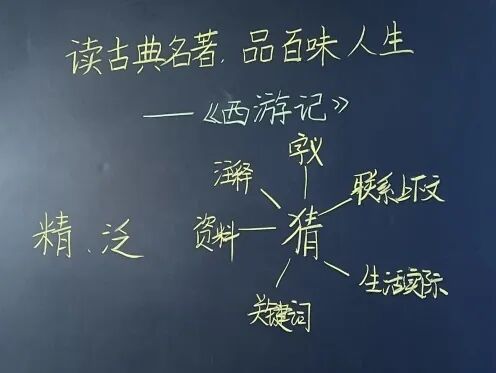 读古典名著,品百味人生
——《西游记》
字义
注释
联系上下文
精、泛
资料
猜
生活实际
关键词